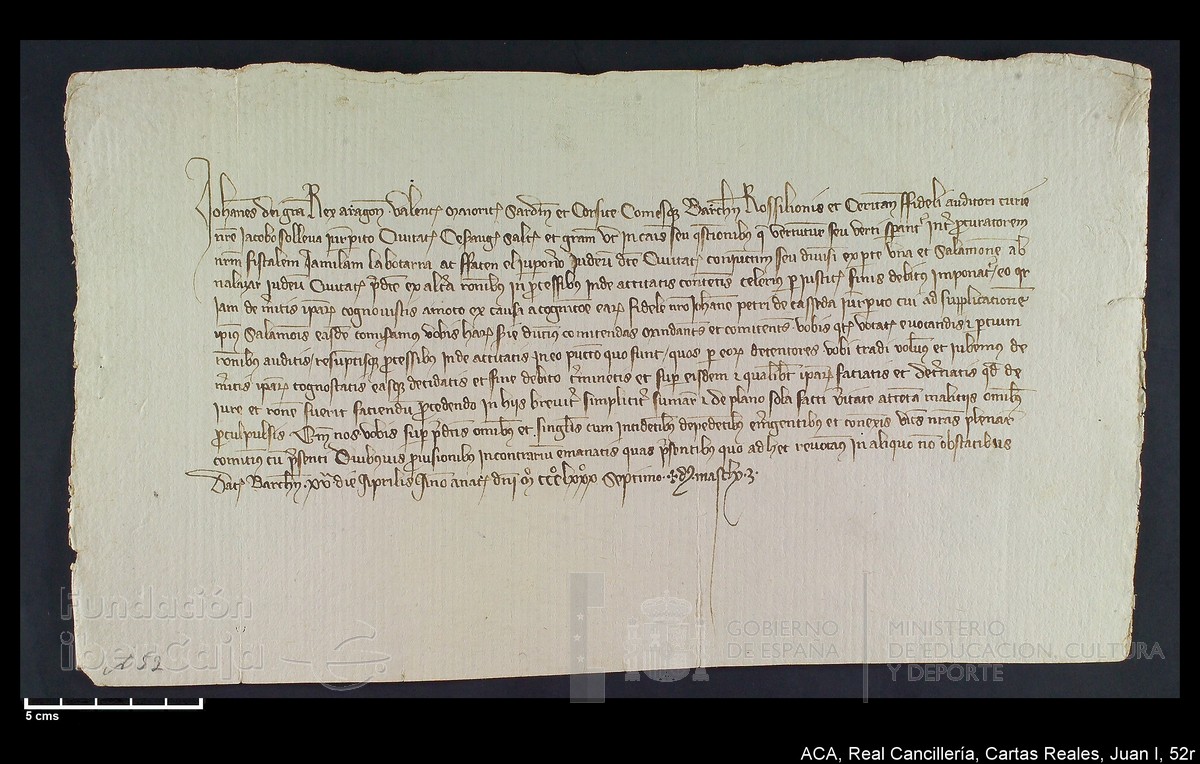 Johanes dei gra Rex aragon valent maioric Sardin et Corsice Comesq barchn Rossilionis et Ceritan ffideli auditori curie
nre Jacobo sollena iurpito Civitat Cesaug salt et gram Ut in causis seu qstionibus q vertuntur seu verti sperant int procuratorem
nrm fiscalem Jamilam labotarra ac ffacen el Judeu dce Civitat coniuctim seu divisi ex pte una et Salamone ab
nalavar Judeu Civitat pdce ex altra ronibus in processibus inde actitatis contentis celeriu per justic finis debito imponat eo qr
iam de mitis ipar cognovistis amoto ex causa a cognitoe ear fideli nro Johane petri de casseda iurpito cui ad supplicatione
ipius Salamois easde comisamus vobis har serie ducim comitendas mandantes et comitentes vobis qt vocat evocandis et ptium
ronibus auditis resumptisq processibus inde actitatis in eo puncto quo sunt quos per eor detentores vobi tradi volumus et iubemus de
mitis ipar cognoscatis easq decidatis et fine debito terminetis et sup eisdem et qualibt ipar faciatis et decernatis qd de
iure et rone fuerit faciendu procedendo in hiis brevit simplicit sumar et de plano sola facti veritate attenta maliciis omibus
proculpulsis Cum nos vobis sup pdictis omibus et singlis cum incidetibus depedetibus emergentibus et conexis vices nras plenar
comitimus cu psenti Quibusvis provisionibus in contrariu emanatis quas psentibus quo ad hec revocam in aliquo no obstatibus
Dat Barchn xv die Aprilis Ano anat dni mo ccco lxxxo Septimo
5 cms
Fundación
iberCaja
GOBIERNO
DE ESPAÑA
MINISTERIO
DE EDUCACIÓN, CULTURA
Y DEPORTE
52
ACA, Real Cancillería, Cartas Reales, Juan I, 52r